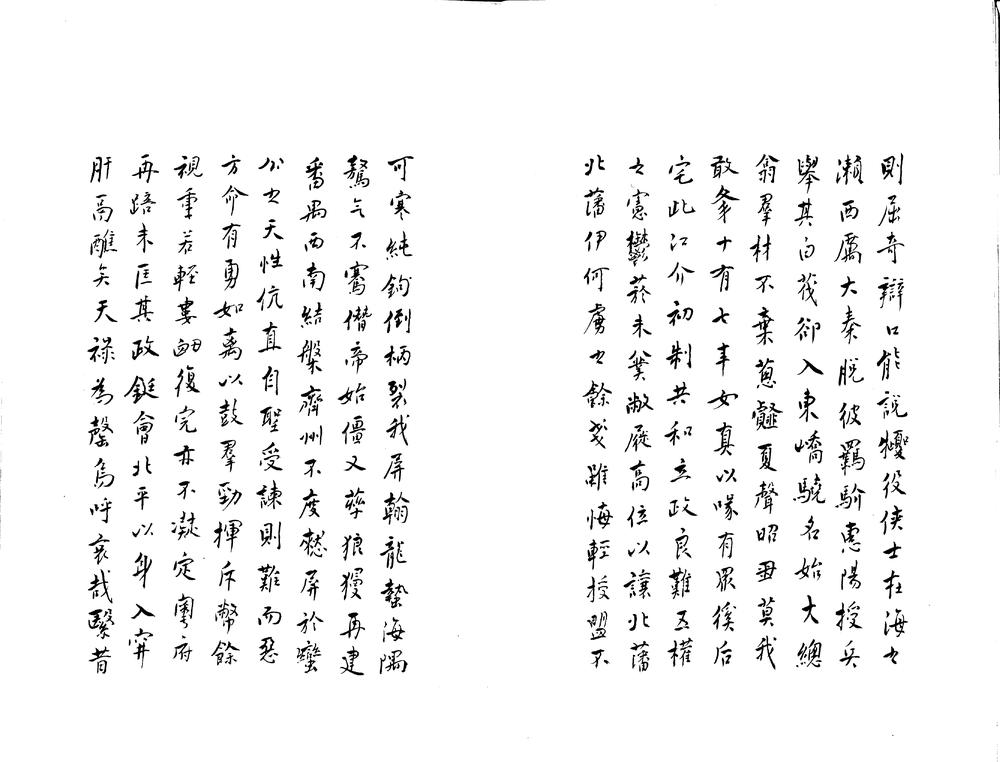 則屈奇辯口能說犪役俠士在海之
瀕西厲大秦脫彼羈馽惠陽授兵
舉其白茷卻入東嶠驍名始大總
翕羣材不棄蔥䪥夏聲昭畺莫我
敢夆十有七年女真以喙有眾徯后
宅此江介初制共和立政良難五權
之憲鬱菸未冀敝屣高位以讓北藩
北藩伊何虜之餘戔雖悔輕授盟不
可寒純鉤倒柄裂我屏翰龍蟄海隅
驁气不騫僭帝始僵又孽狼獌再建
番禺西南結槃齊州不度憖屏於蠻
公之天性伉直自聖受諫則難而惡
方命有勇如离以鼓羣勁揮斥幣餘
視重若輕婁衄復完亦不凝定粵府
再踣未匡其政鋌會北平以身入穽
肝鬲醮矣天祿為罄烏呼哀哉繄昔